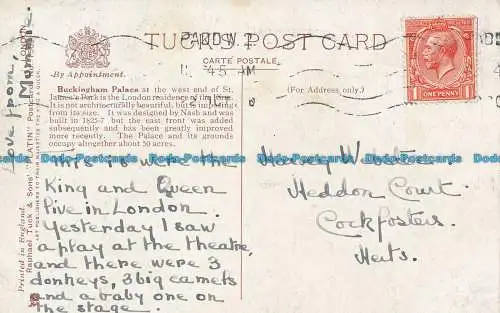 TUCK'S POST CARD
CARTE POSTALE
By Appointment.
(For Address only.)
PADD W. 2
45 AM
ONE PENNY
Buckingham Palace at the west end of St.
James's Park is the London residence of the King.
It is not architecturally beautiful, but
from its size. It was designed by Nash and was
built in 1825-7 but the east front was added
subsequently and has been greatly improved
more recently. The Palace and its grounds
occupy altogether about 50 acres.
This is were the
King and Queen
live in London.
Yesterday I saw
a play at the theatre,
and there were 3
donkeys, 3 big camels
and a baby one on
the stage.
Love from
Mummie.
Heddon Court
Cockfosters
Herts.
Printed in England.
Raphael Tuck & Sons'